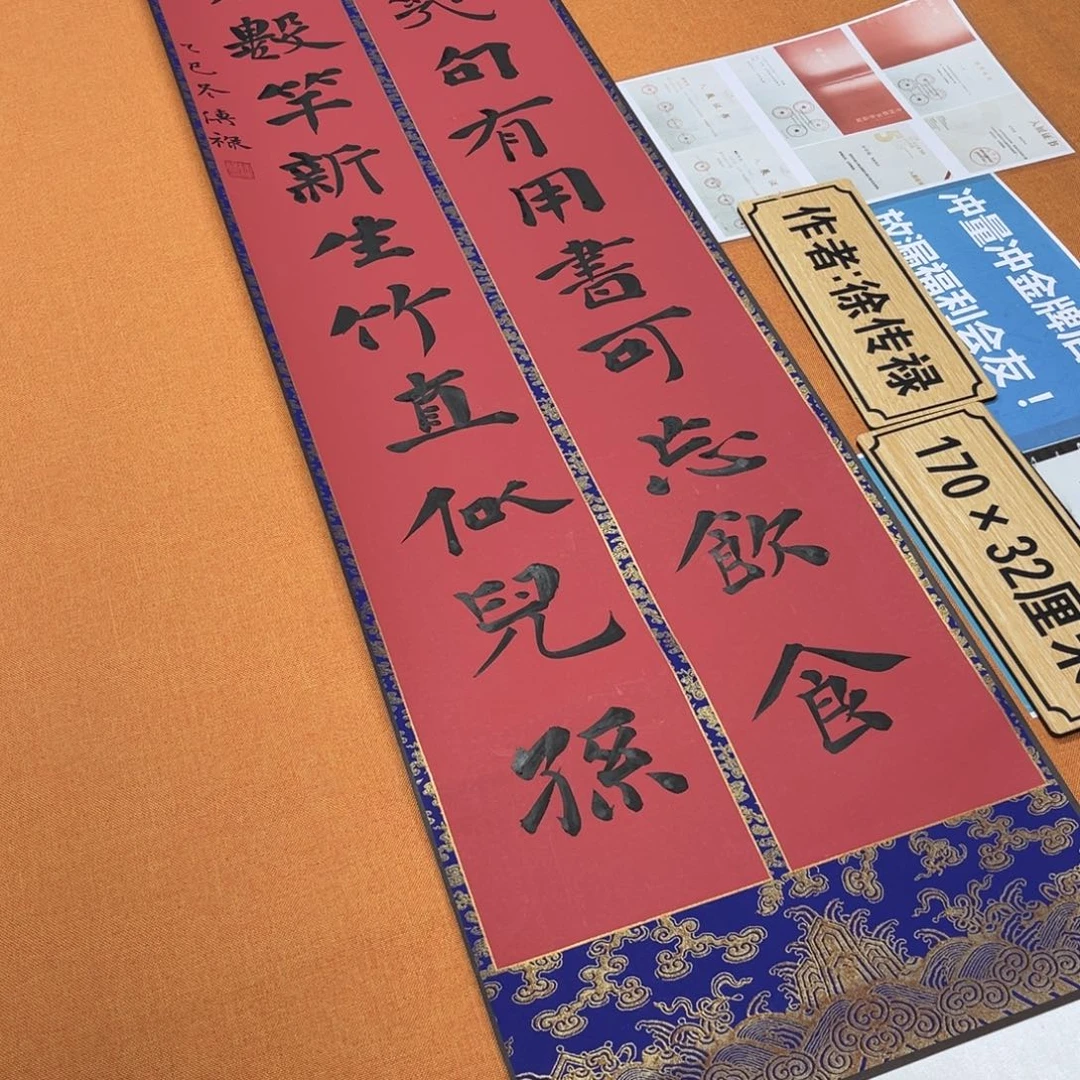 句有用書可忘飲食
數竿新生竹直似兒孫
乙巳冬傳祿
作者:徐传禄
170×32厘米
冲量冲金牌店
放漏福利会友！
入展证书